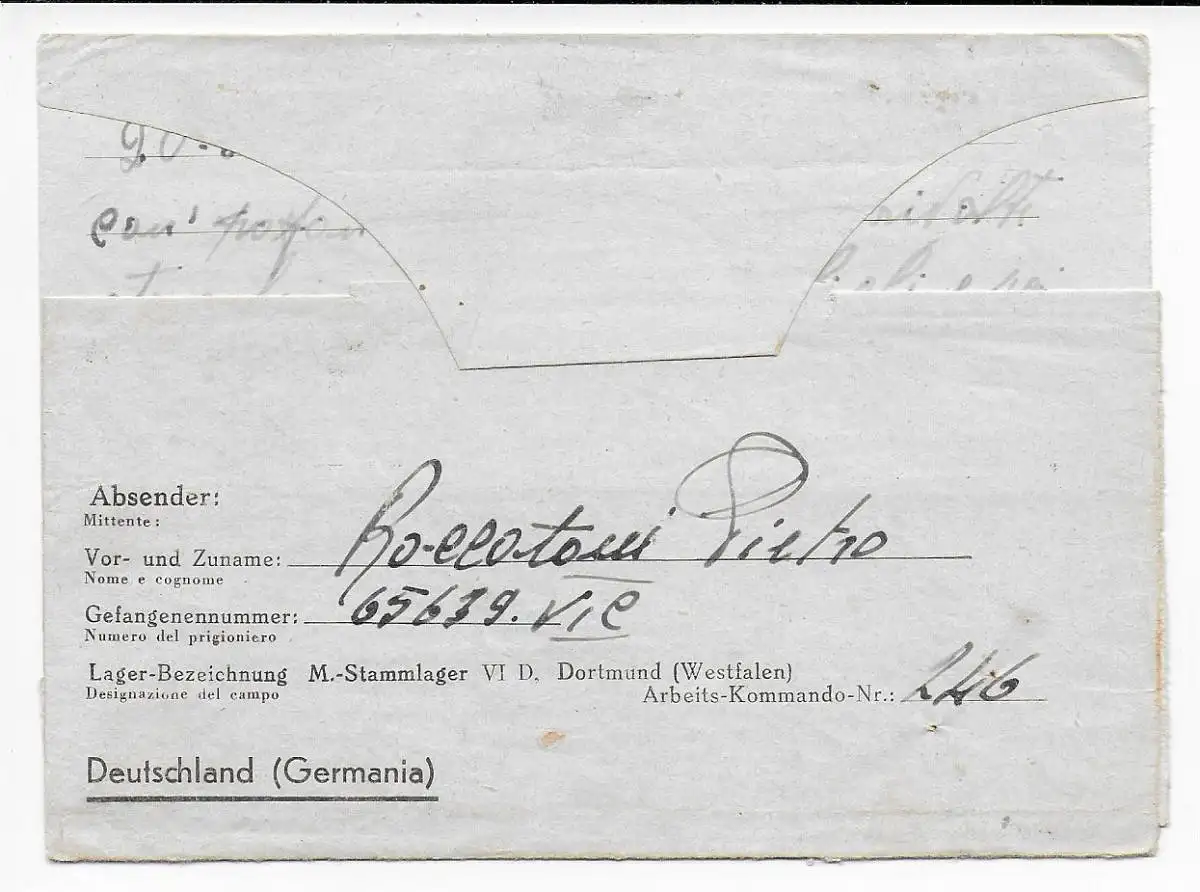 Absender:
Mittente:
Pietro
Vor- und Zuname:
Nome e cognome
65639. VI C
Gefangenennummer:
Numero del prigioniero
Lager-Bezeichnung M.-Stammlager VI D. Dortmund (Westfalen)
Designazione del campo Arbeits-Kommando-Nr.: 246
Deutschland (Germania)